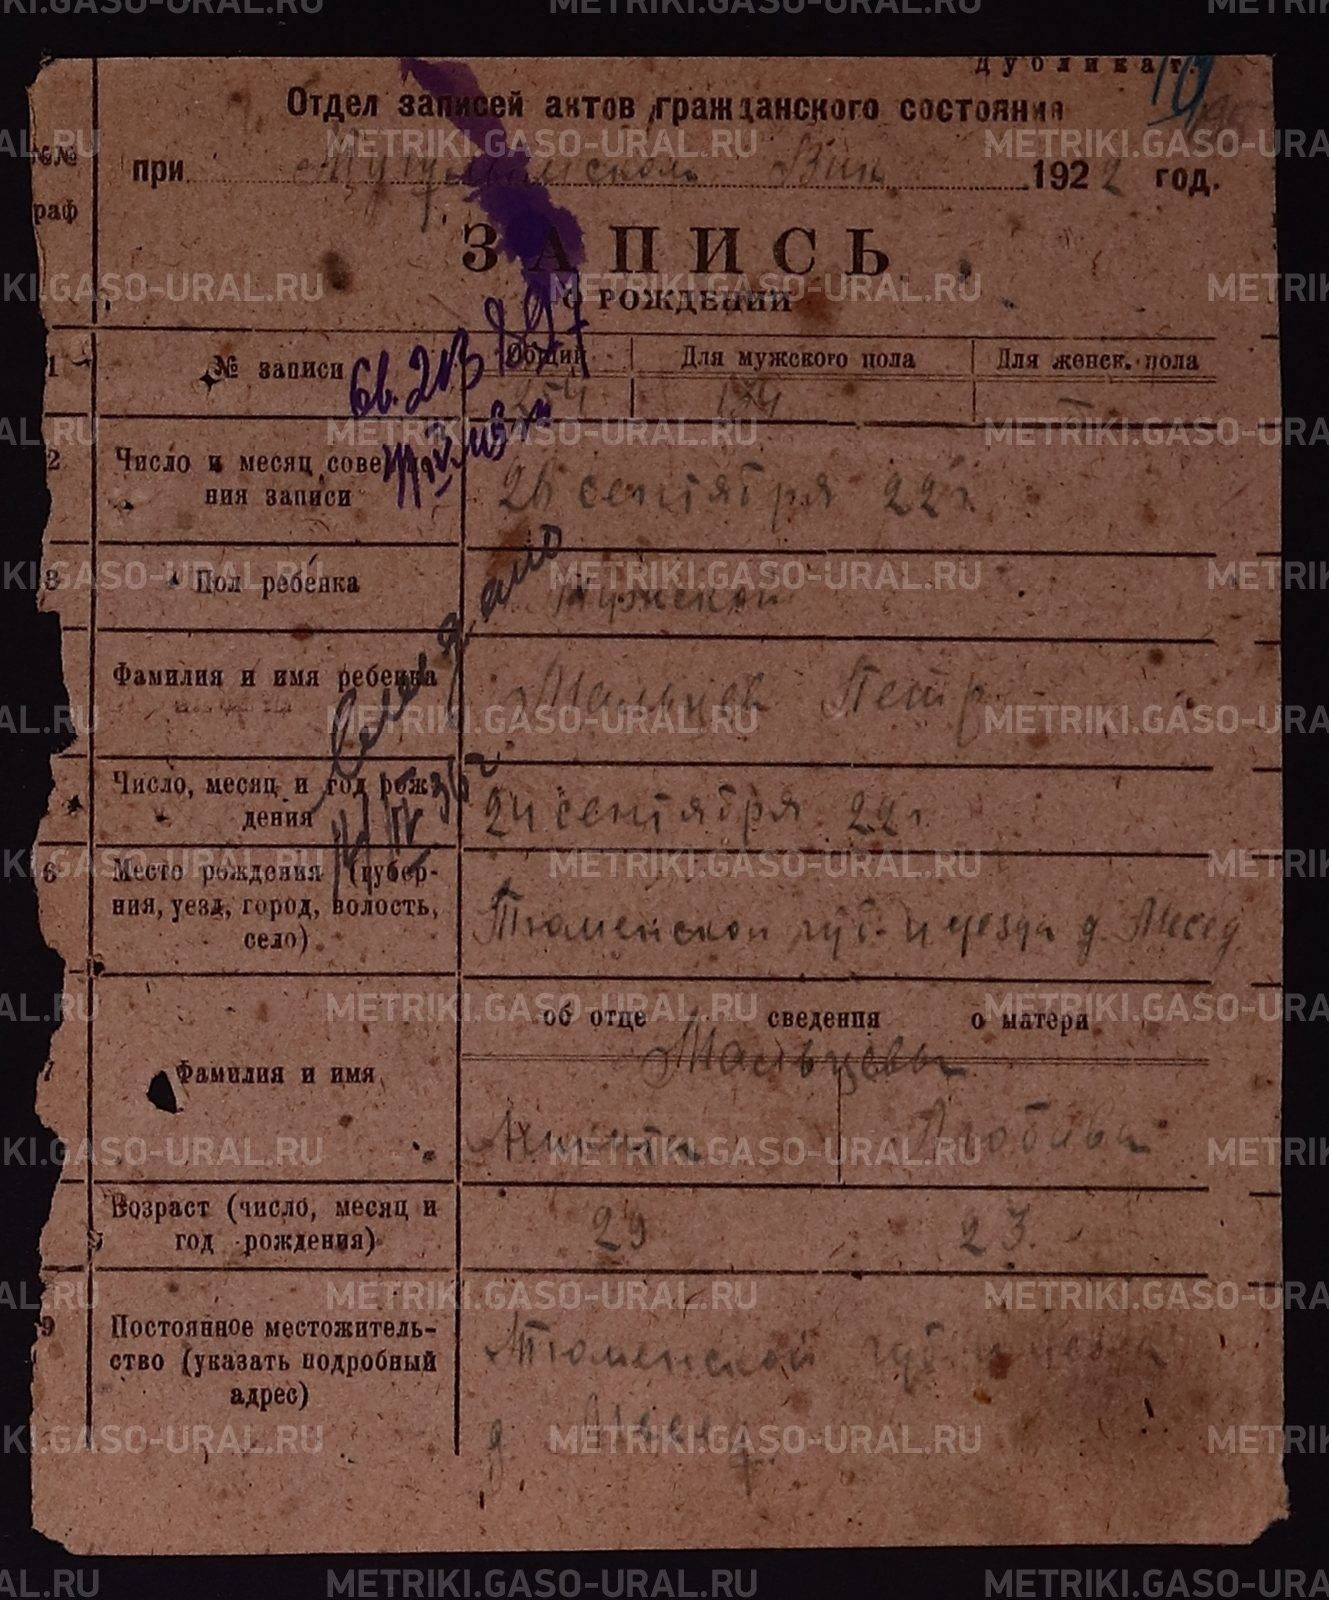 Дубликат.
Отдел записей актов гражданского состояния
№№
раф
при Вик 1922 год.
ЗАПИСЬ
О РОЖДЕНИИ
1 № записи Общий Для мужского пола Для женск. пола
св. 213 897
254 134
2 Число и месяц совер
ния записи
26 сентября 22 г.
3 Пол ребенка Мужской
Фамилия и имя ребенка Мальцев Петр
Число, месяц и год рож-
дения
24 сентября 22 г
6 Место рождения (губер-
ния, уезд, город, волость,
село)
Тюменской губ. и уезда д.
об отце сведения о матери
Мальцевы
7 Фамилия и имя
Никита Любава
Возраст (число, месяц и
год рождения)
29 23.
9 Постоянное местожитель-
ство (указать подробный
адрес)
Тюменской губ и уезда
д.
METRIKI.GASO-URAL.RU